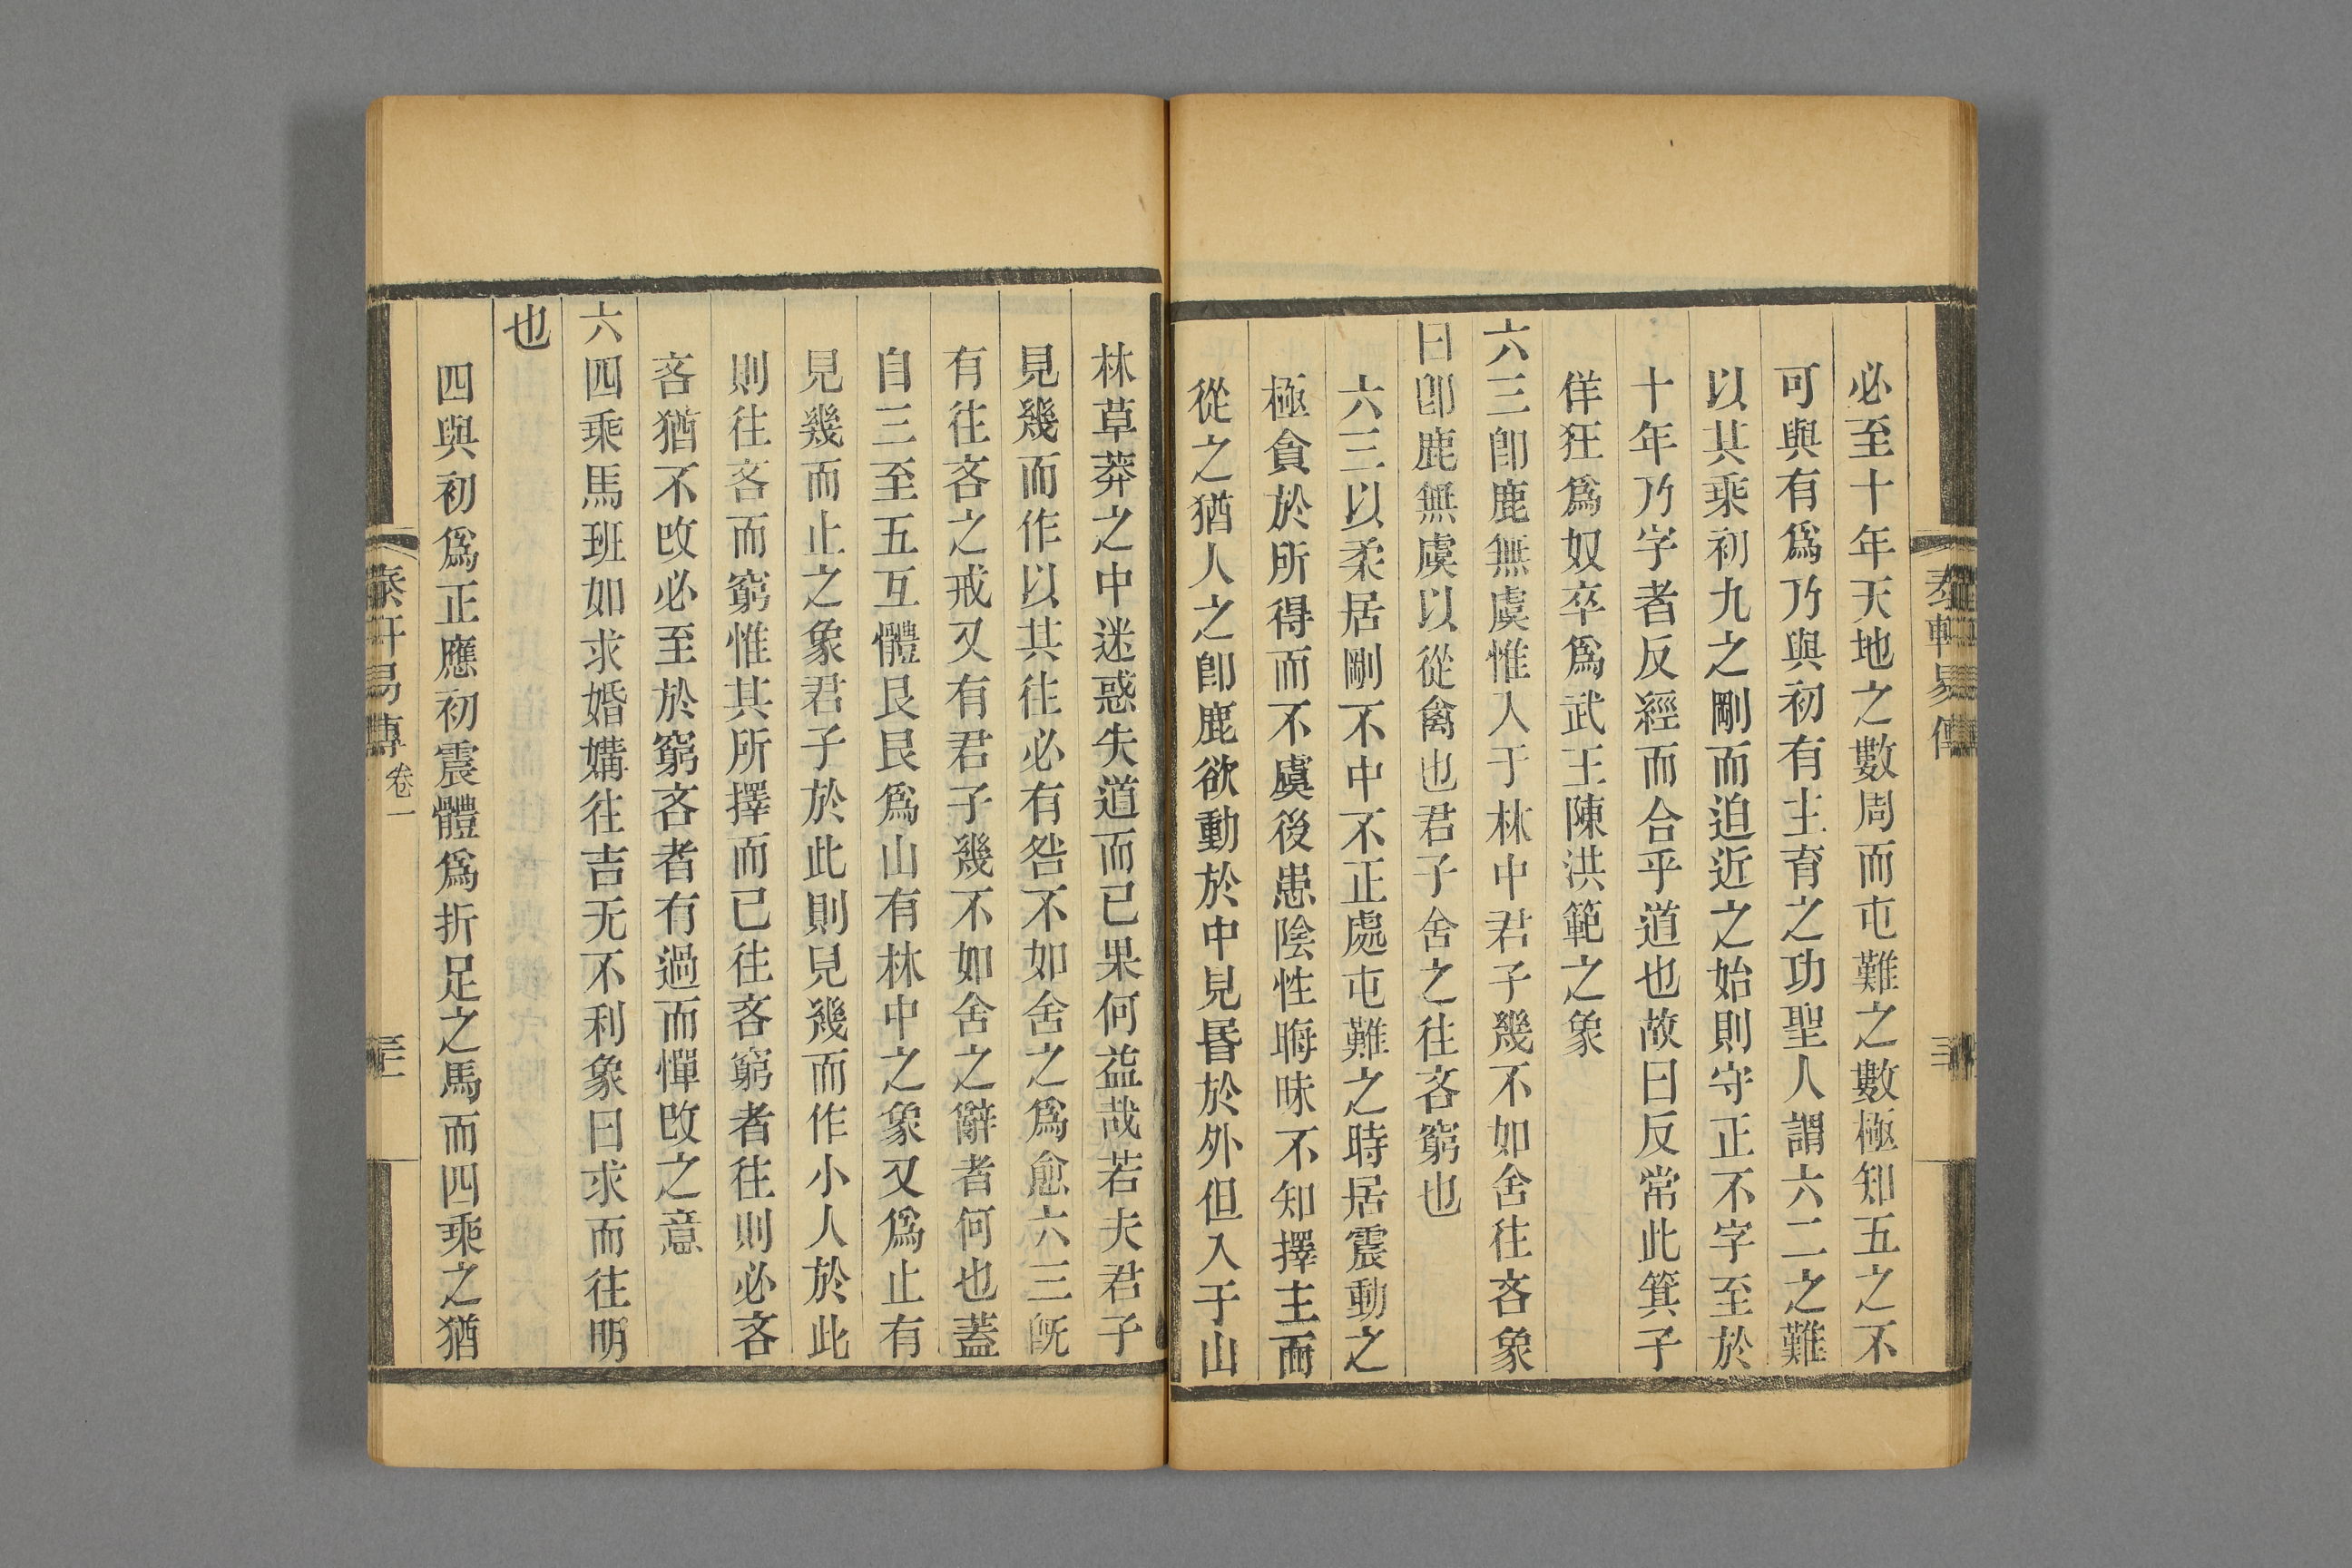 必至十年天地之數周而屯難之數極知五之不
可與有爲乃與初有主育之功聖人謂六二之難
以其乘初九之剛而迫近之始則守正不字至於
十年乃字者反經而合乎道也故曰反常此箕子
佯狂爲奴卒爲武王陳洪範之象
六三卽鹿無虞惟入于林中君子幾不如舍往吝象
曰卽鹿無虞以從禽也君子舍之往吝窮也
六三以柔居剛不中不正處屯難之時居震動之
極貪於所得而不虞後患陰性晦昧不知擇主而
從之猶人之卽鹿欲動於中見昬於外但入于山
林草莽之中迷惑失道而已果何益哉若夫君子
見幾而作以其往必有咎不如舍之爲愈六三旣
有往吝之戒又有君子幾不如舍之辭者何也蓋
自三至五互體艮艮爲山有林中之象又爲止有
見幾而止之象君子於此則見幾而作小人於此
則往吝而窮惟其所擇而已往吝窮者往則必吝
吝猶不改必至於窮吝者有過而憚改之意
六四乘馬班如求婚媾往吉无不利象曰求而往明
也
四與初爲正應初震體爲折足之馬而四乘之猶
易傳 卷一